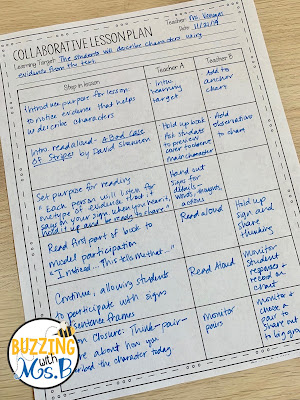 COLLABORATIVE LESSON PLAN
Teacher: Ms.
Date: 11/22/19
Learning Target: The students will describe characters using
evidence from the text.
Step in lesson
Teacher A
Teacher B
Introduce purpose for lesson:
to notice evidence that helps
us describe characters
Intro.
learning
target
Add to
anchor
chart
Intro. read aloud - A Bad Case
of Stripes by David Shannon
Hold up book
Ask students
to preview
cover to observe
main character
Add
observations
to chart
Set purpose for reading
"Each person will listen for
one type of evidence that it
says on your sign. When you hear it,
hold it up and be ready to share."
Hand out
signs for
details -
words, thoughts,
actions
Read first part of book to
model participation
"I noticed... This tells me that..."
Read aloud
Hold up
sign and
share
thinking
Continue, allowing students
to participate with signs
sentence frames
Read Aloud
monitor
student
responses &
record on
chart
Closure: Think-pair-
are about how you
the character today.
monitor
pairs
monitor &
choose a
pair to
share out
to big group
BUZZING
with
Ms. B